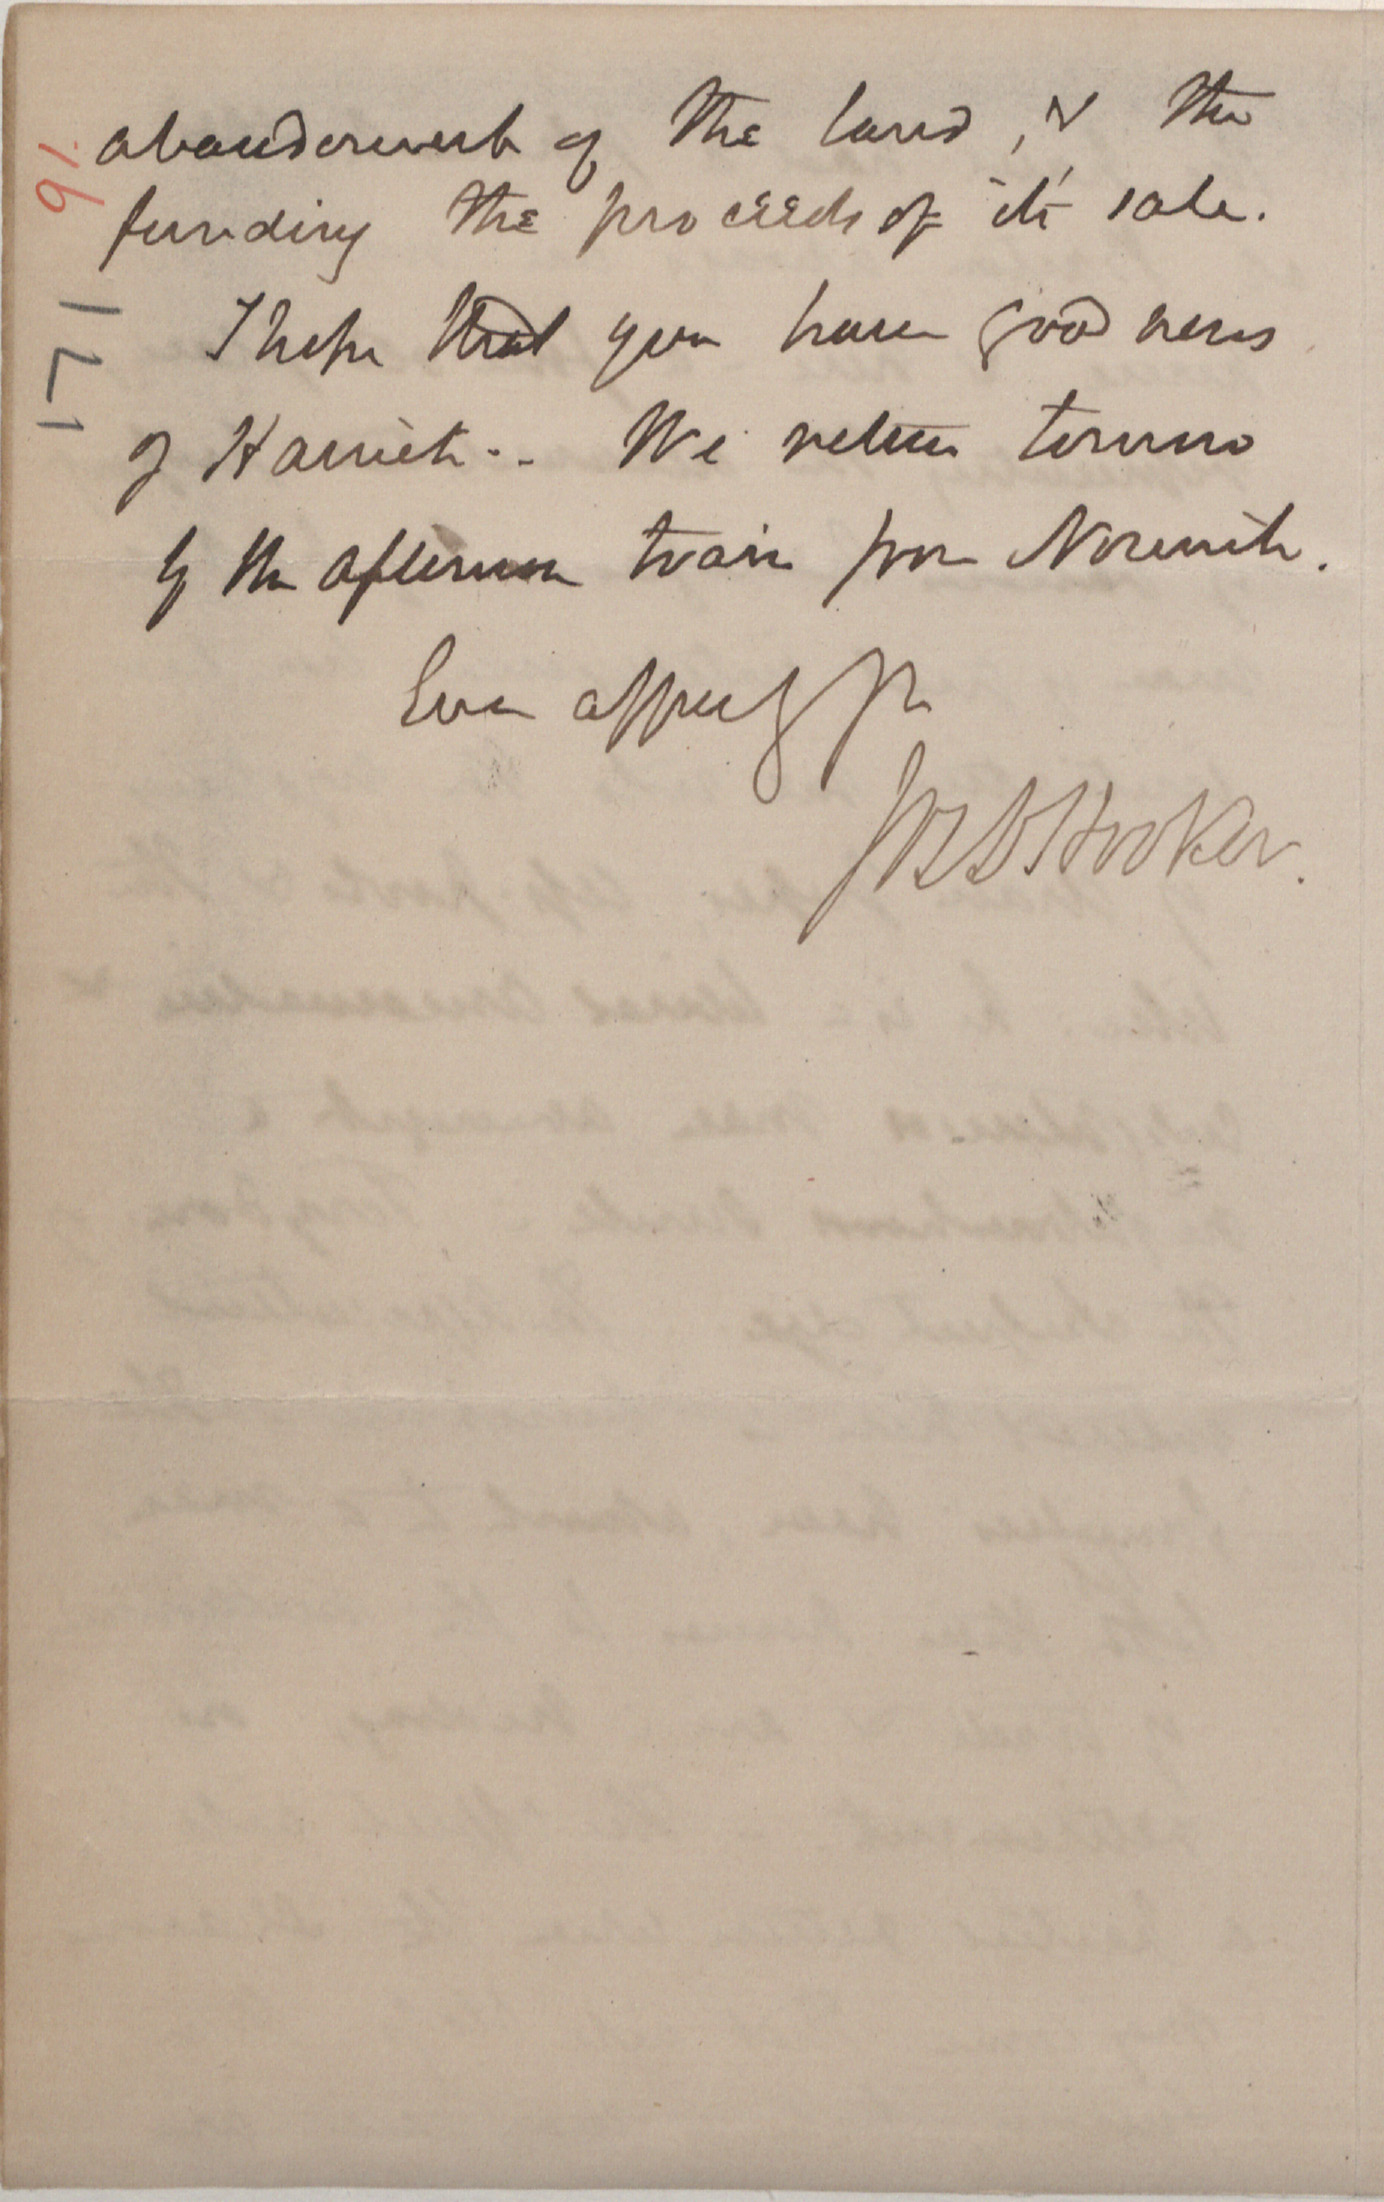 abandonment of the land, & the
funding the proceeds of it's sale.
I hope that you have good news
of Harriet.. We return tomorrow
by the afternoon train from Norwich.
Ever affecly yr
Jos D Hooker.
91.
171